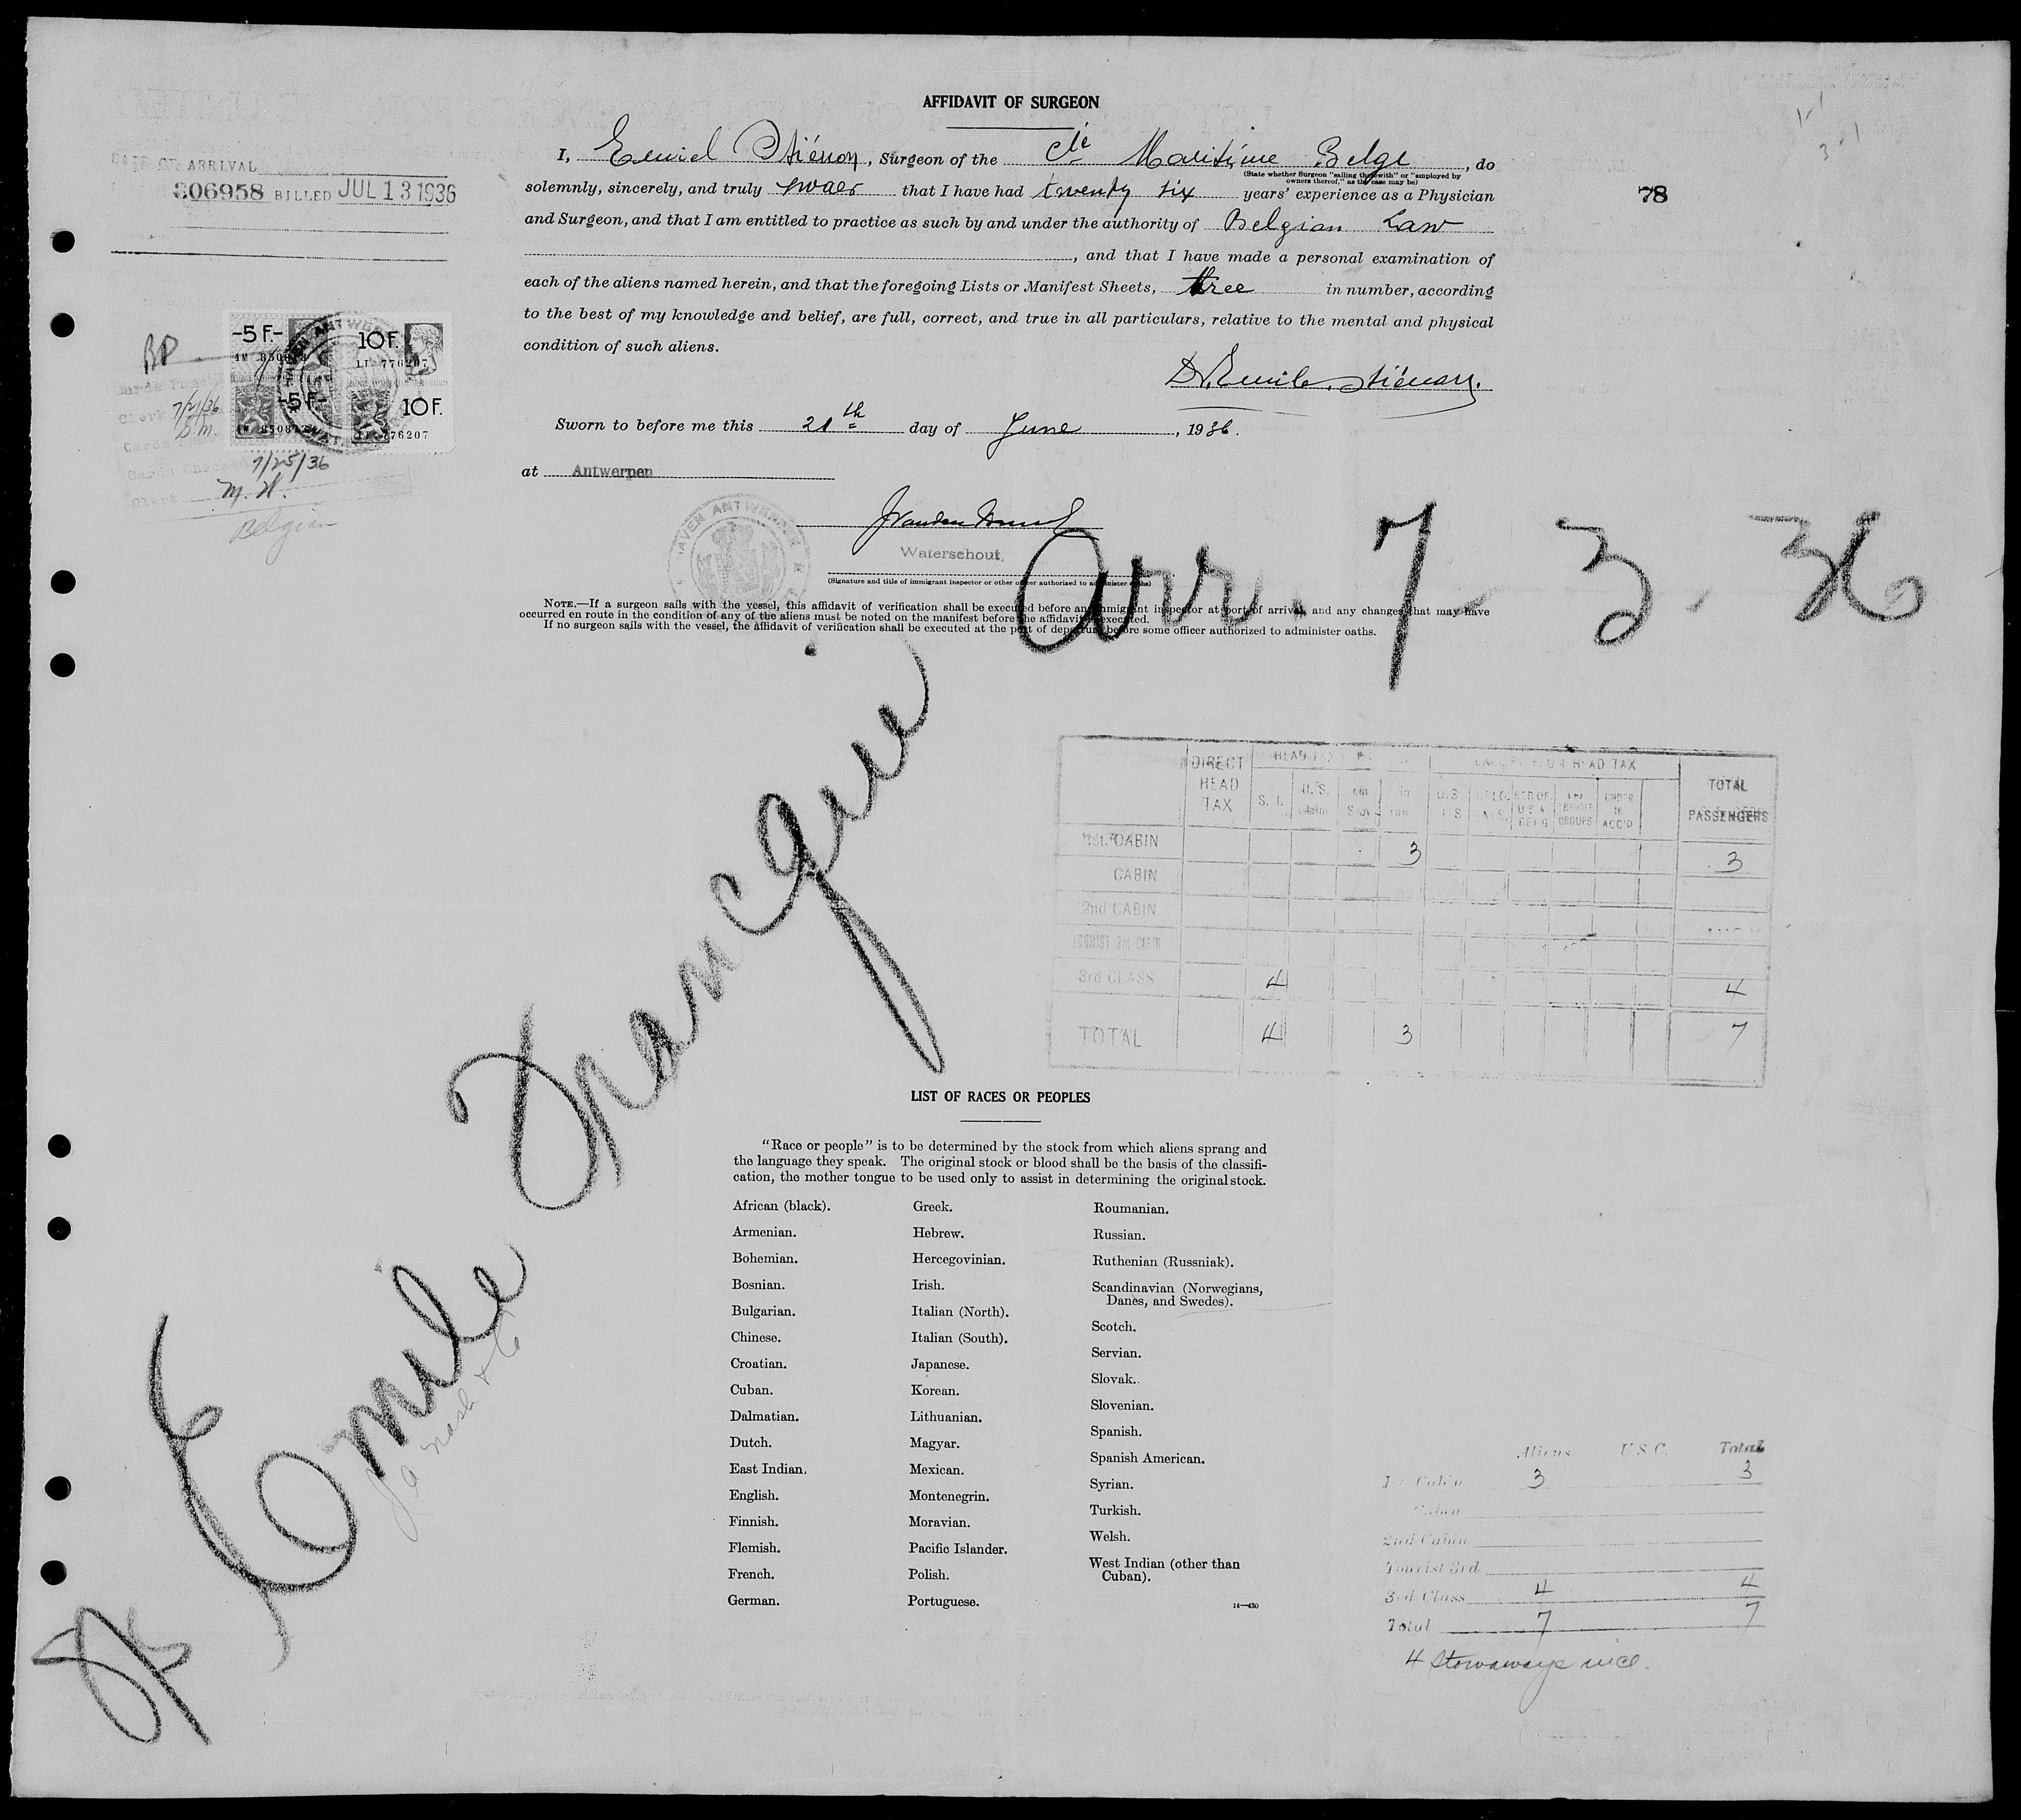 AFFIDAVIT OF SURGEON
I, Emiel Stiénon, Surgeon of the Cie Maritime Belge, do
(State whether Surgeon "sailing therewith" or "employed by
owners thereof," as the case may be)
solemnly, sincerely, and truly swaer that I have had twenty six years' experience as a Physician
and Surgeon, and that I am entitled to practice as such by and under the authority of Belgian Law
, and that I have made a personal examination of
each of the aliens named herein, and that the foregoing Lists or Manifest Sheets, three in number, according
to the best of my knowledge and belief, are full, correct, and true in all particulars, relative to the mental and physical
condition of such aliens.
Dr. Emile Stiénon.
Sworn to before me this 21th day of June, 1936.
at Antwerpen
Waterschout.
(Signature and title of immigrant inspector or other officer authorized to administer oaths)
NOTE.—If a surgeon sails with the vessel, this affidavit of verification shall be executed before an immigrant inspector at port of arrival, and any changes that may have
occurred en route in the condition of any of the aliens must be noted on the manifest before the affidavit is executed.
If no surgeon sails with the vessel, the affidavit of verification shall be executed at the port of departure before some officer authorized to administer oaths.
DATE OF ARRIVAL
306958 BILLED JUL 13 1936
78
BP
-5 F- 10 F.
LI 776207
-5 F- 10 F.
776207
7/21/36
7/25/36
M. W.
Belgian
HAVEN ANTWERPEN
Arr. 7-3-36
SS Emile Francqui
DIRECT HEAD TAX
HEAD TAX
EXEMPT FROM HEAD TAX
TOTAL PASSENGERS
S. I. U. S.
UNDER 16 ACC'D
1st CABIN 3 3
CABIN
2nd CABIN
TOURIST 3rd CABIN
3rd CLASS 4 4
TOTAL 4 3 7
LIST OF RACES OR PEOPLES
"Race or people" is to be determined by the stock from which aliens sprang and
the language they speak. The original stock or blood shall be the basis of the classifi-
cation, the mother tongue to be used only to assist in determining the original stock.
African (black).
Armenian.
Bohemian.
Bosnian.
Bulgarian.
Chinese.
Croatian.
Cuban.
Dalmatian.
Dutch.
East Indian.
English.
Finnish.
Flemish.
French.
German.
Greek.
Hebrew.
Hercegovinian.
Irish.
Italian (North).
Italian (South).
Japanese.
Korean.
Lithuanian.
Magyar.
Mexican.
Montenegrin.
Moravian.
Pacific Islander.
Polish.
Portuguese.
Roumanian.
Russian.
Ruthenian (Russniak).
Scandinavian (Norwegians,
Danes, and Swedes).
Scotch.
Servian.
Slovak.
Slovenian.
Spanish.
Spanish American.
Syrian.
Turkish.
Welsh.
West Indian (other than
Cuban).
14—430
Aliens U.S.C. Total
1st Cabin 3 3
Cabin
2nd Cabin
Tourist 3rd
3rd Class 4 4
Total 7 7
4 Stowaways incl.